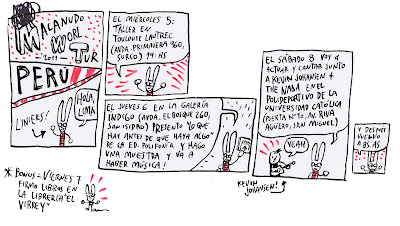 MACANUDO
WORL
TUR
2011
PERU
LINIERS!
HOLA,
LIMA
EL MIÉRCOLES 5:
TALLER EN
TOULOUSE LAUTREC
(AVDA. PRIMAVERA 960,
SURCO) 19 HS
EL JUEVES 6 EN LA GALERÍA
INDIGO (AVDA. EL BOSQUE 260,
SAN ISIDRO) PRESENTO "LO QUE
HAY ANTES DE QUE HAYA ALGO"
DE LA ED. POLIFONÍA Y HAGO
UNA MUESTRA Y VA A
HABER MÚSICA!
EL SÁBADO 8 VOY A
ACTUAR Y CANTAR JUNTO
A KEVIN JOHANSEN +
THE NADA EN EL
POLIDEPORTIVO DE LA
UNIVERSIDAD CATÓLICA
(PUERTA Nº 10, AV. RIVA
AGÜERO, SAN MIGUEL)
YEAH
KEVIN
JOHANSEN!
Y DESPUÉS
VUELVO
A BS. AS.
* BONUS = VIERNES 7
FIRMO LIBROS EN
LA LIBRERÍA "EL
VIRREY"